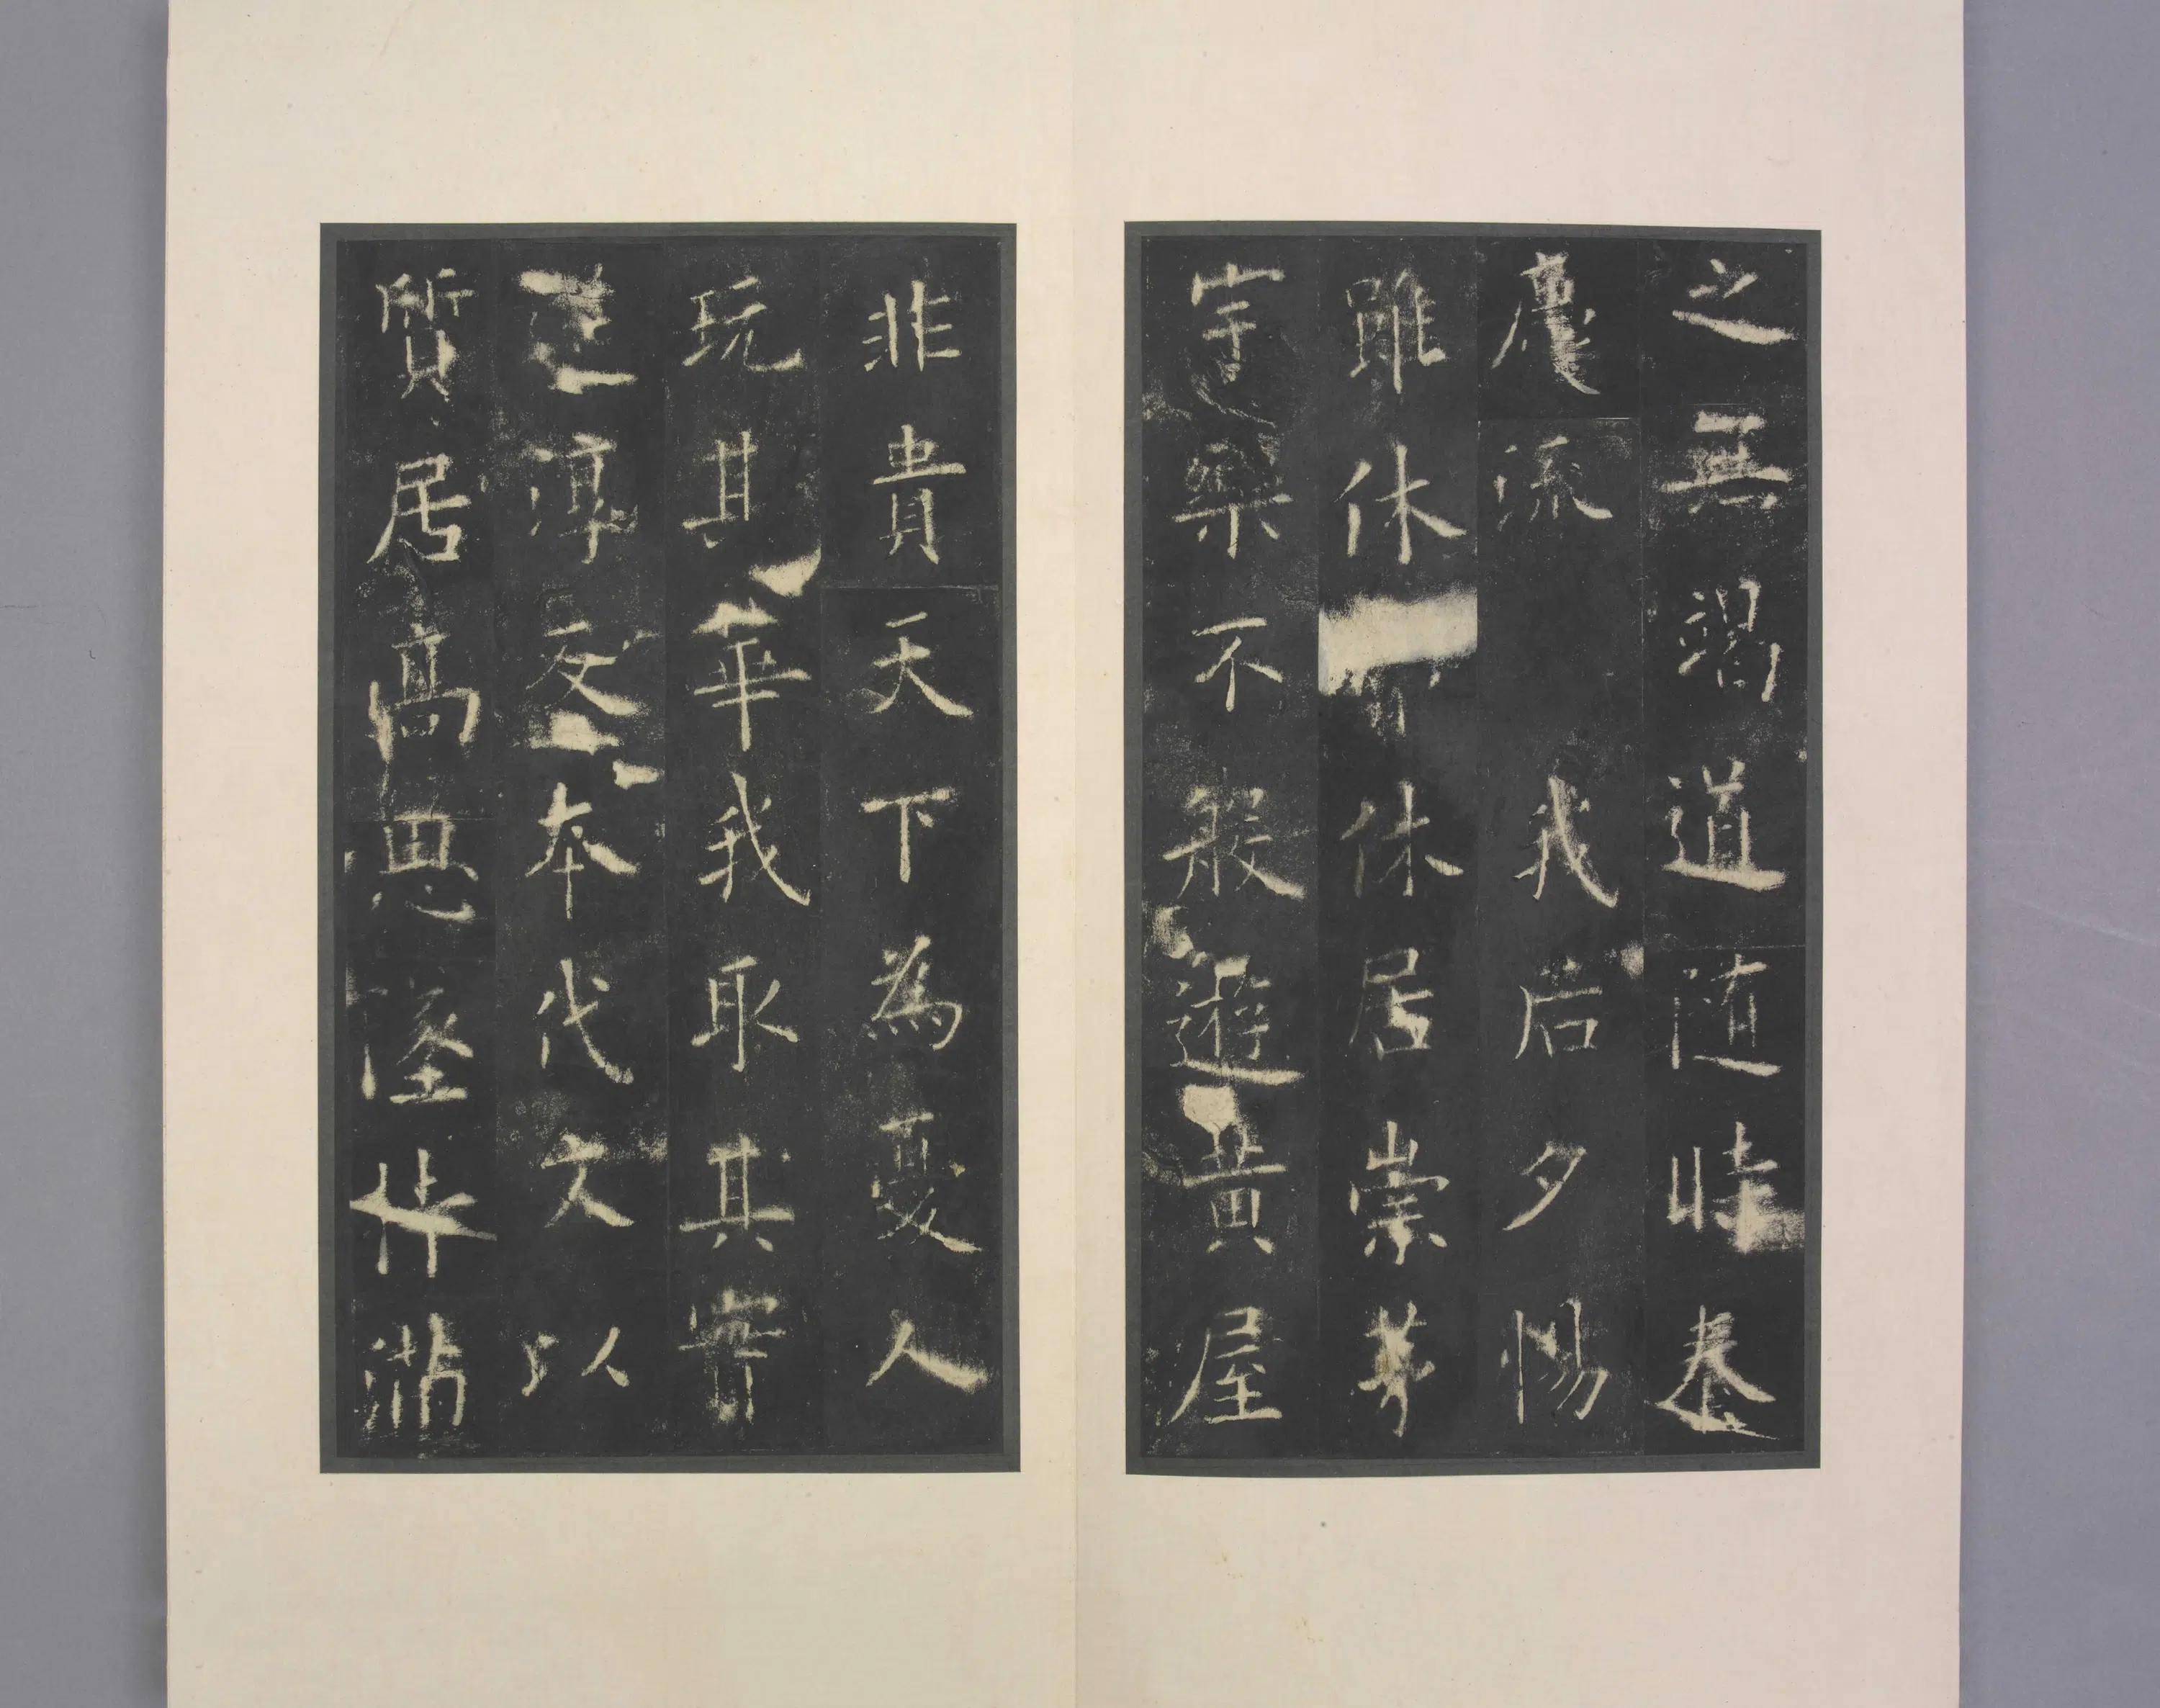 之無竭道随時泰
慶流我后夕惕
雖休休居崇茅
宇樂不般遊黃屋
非貴天下為憂人
玩其華我取其實
還淳反本代文以
質居高思墜持滿